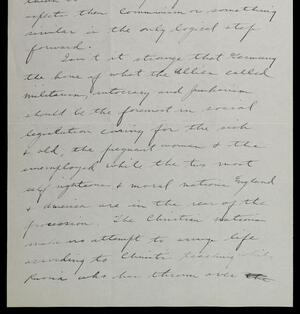 affects then Communism or something
similar is the only logical step
forward.
Isn't it strange that Germany
the home of what the Allies called
militarism, autocracy and junkerism
should be the foremost in social
legislation caring for the sick
& old, the pregnant women & the
unemployed while the two most
self righteous & moral nations England
& America are in the rear of the
procession. The Christian nations
make no attempt to arrange life
according to Christ's teaching while
Russia who has thrown over the